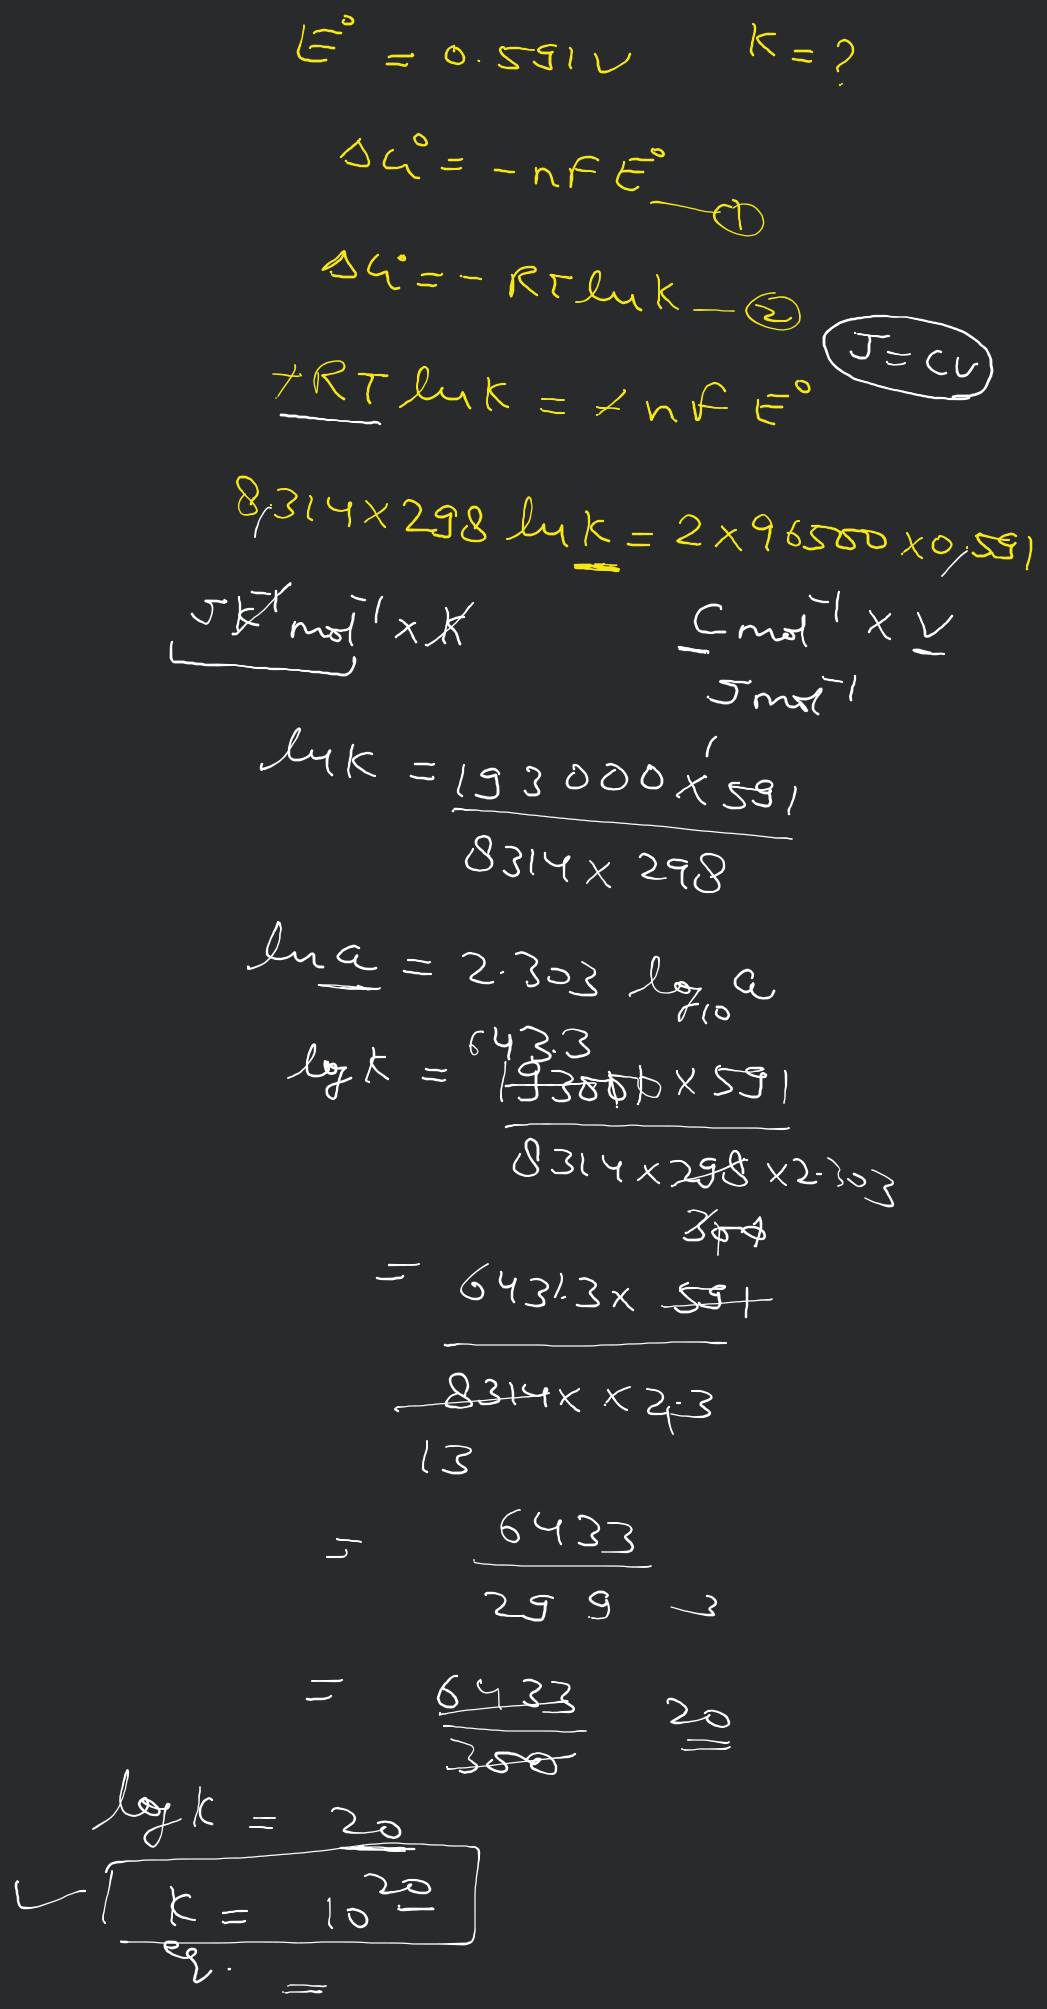 E° = 0.591 V K = ?
ΔG° = - nFE° — ①
ΔG° = - RT ln K — ②
J = CV
+RT ln K = + nFE°
8.314 × 298 ln K = 2 × 96500 × 0.591
J K⁻¹ mol⁻¹ × K C mol⁻¹ × V
J mol⁻¹
ln K = 193000 × 591
8314 × 298
ln a = 2.303 log₁₀ a
643.3
log K = 193000 × 591
8314 × 298 × 2.303
300
= 643.3 × 591
8314 × × 2.3
13
= 6433
299
= 6433 20
300
log K = 20
K eq. = 10²⁰
=